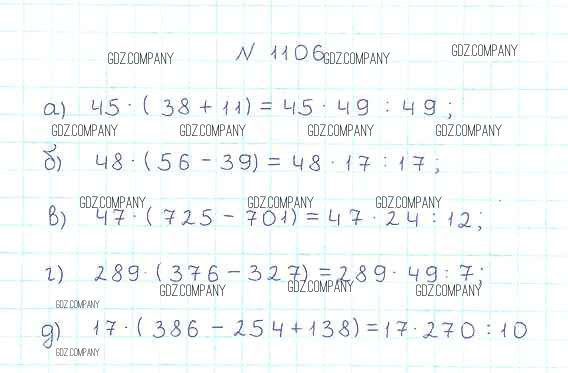 N 1106
GDZ.COMPANY GDZ.COMPANY GDZ.COMPANY
а) 45 · (38 + 11) = 45 · 49 : 49;
GDZ.COMPANY GDZ.COMPANY GDZ.COMPANY GDZ.COMPANY
б) 48 · (56 - 39) = 48 · 17 : 17;
GDZ.COMPANY GDZ.COMPANY GDZ.COMPANY
в) 47 · (725 - 701) = 47 · 24 : 12;
г) 289 · (376 - 327) = 289 · 49 : 7;
GDZ.COMPANY GDZ.COMPANY GDZ.COMPANY
GDZ.COMPANY
д) 17 · (386 - 254 + 138) = 17 · 270 : 10
GDZ.COMPANY